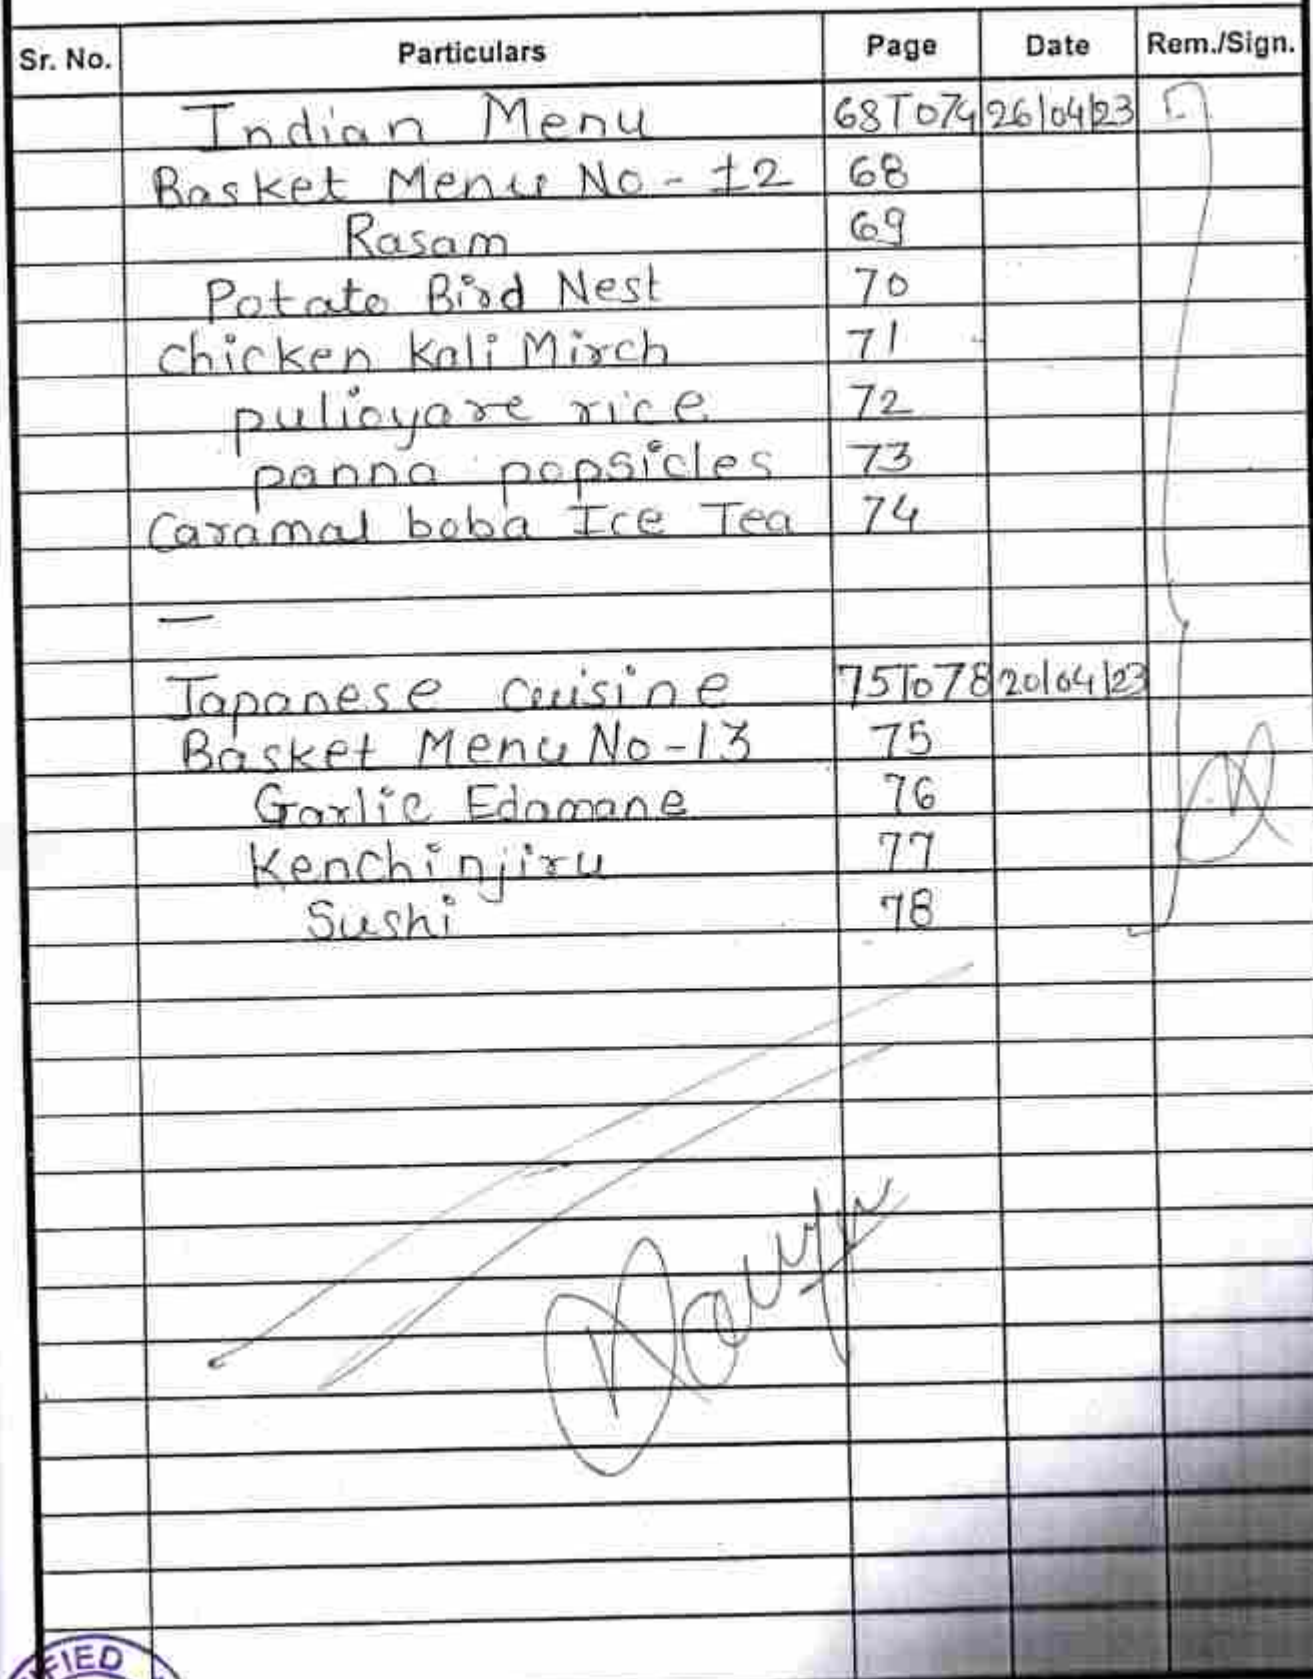 Sr. No. Particulars Page Date Rem./Sign.
Indian Menu 68To74 26/04/23
Basket Menu No - 12 68
Rasam 69
Potato Bird Nest 70
Chicken Kali Mirch 71
pulioyare rice 72
panna popsicles 73
Caramal boba Ice Tea 74
—
Japanese cuisine 75To78 20/04/23
Basket Menu No -13 75
Garlic Edamane 76
Kenchinjiru 77
Sushi 78